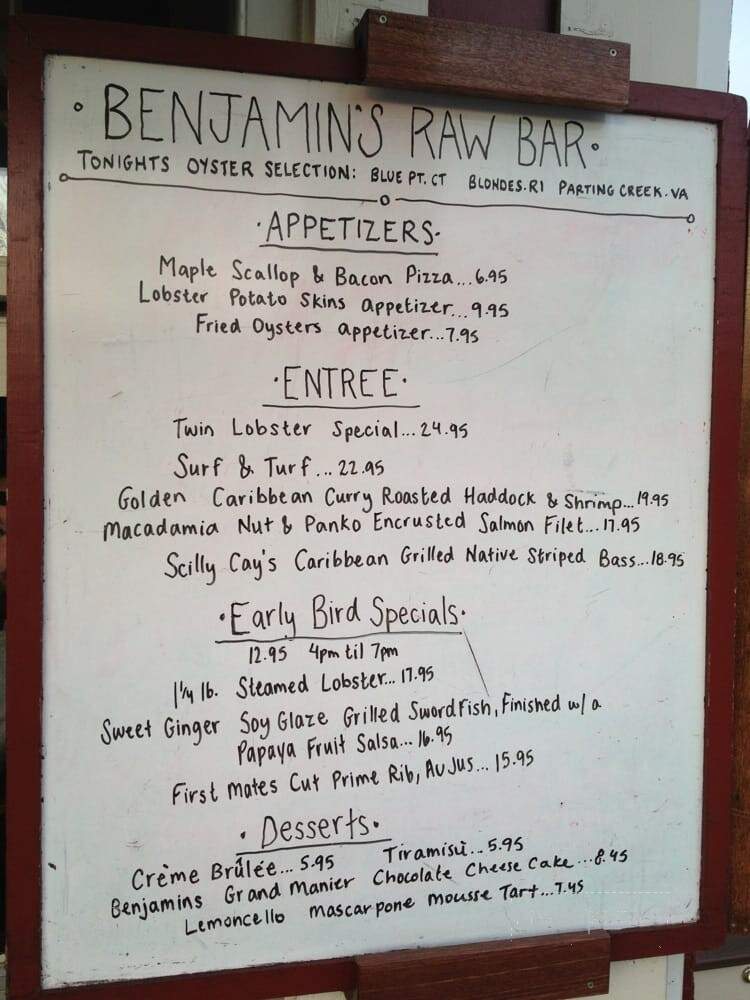 BENJAMIN'S RAW BAR
TONIGHTS OYSTER SELECTION: BLUE PT. CT BLONDES. RI PARTING CREEK. VA
APPETIZERS
Maple Scallop & Bacon Pizza...6.95
Lobster Potato Skins appetizer...9.95
Fried Oysters appetizer...7.95
ENTREE
Twin Lobster Special...24.95
Surf & Turf...22.95
Golden Caribbean Curry Roasted Haddock & Shrimp...19.95
Macadamia Nut & Panko Encrusted Salmon Filet...17.95
Scilly Cay's Caribbean Grilled Native Striped Bass...18.95
Early Bird Specials
12.95 4pm til 7pm
1 1/4 lb. Steamed Lobster...17.95
Sweet Ginger Soy Glaze Grilled Swordfish, Finished w/ a
Papaya Fruit Salsa...16.95
First Mates Cut Prime Rib, Au Jus...15.95
Desserts
Crème Brûlée...5.95 Tiramisù...5.95
Benjamins Grand Manier Chocolate Cheese Cake...8.45
Lemoncello mascarpone mousse Tart...7.45